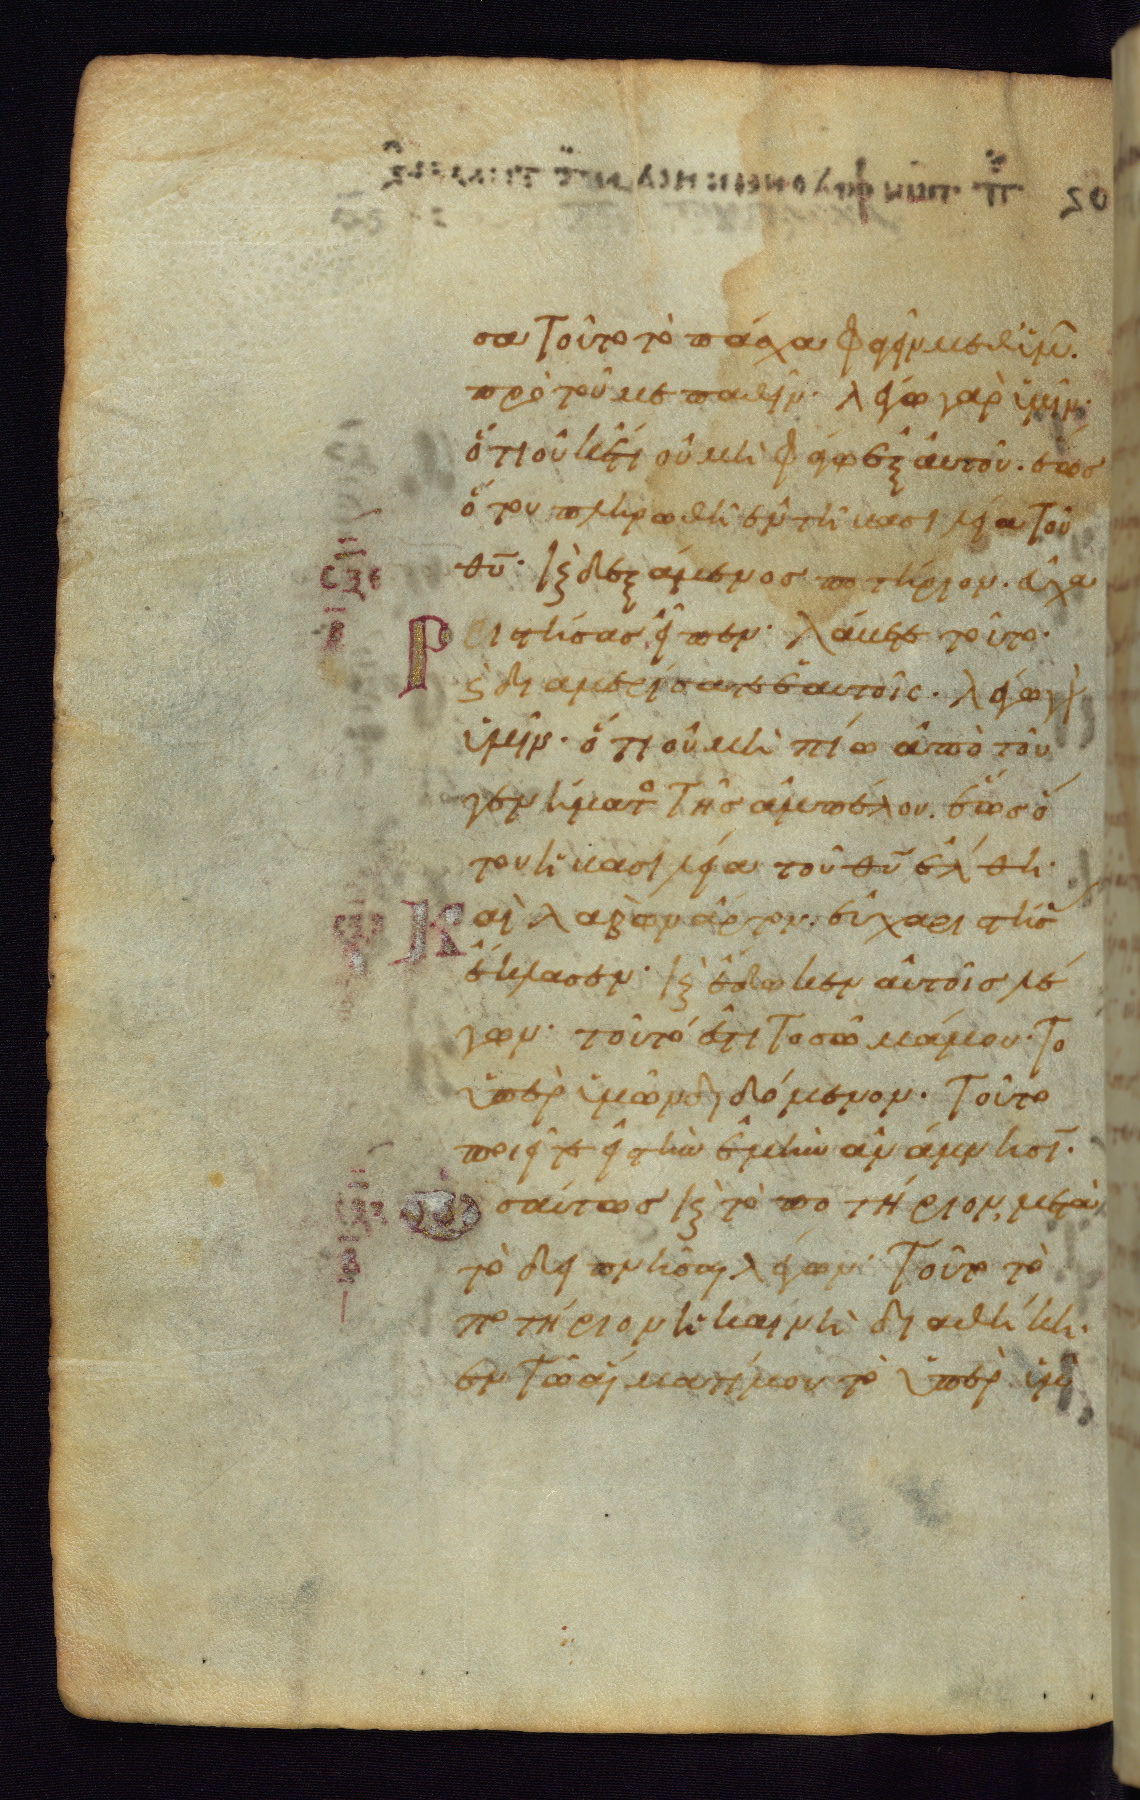 σα τοῦτο τὸ πάσχα φαγεῖν μεθ ὑμῶ̅.
πρὸ τοῦ με παθεῖν· λέγω γὰρ ὑμῖν·
ὅτι οὐκέτι οὐ μὴ φάγω ἐξ αὐτοῦ. ἕως
ὅτου πληρωθῆ ἐν τῆ βασιλεία τοῦ
θυ̅· καὶ δεξάμενος ποτήριον. εὐχα
ριστήσας εἶπεν· λάβετε τοῦτο·
καὶ διαμερίσατε ἑαυτοῖς. λέγω γὰρ
ὑμῖν· ὅτι οὐ μὴ πίω ἀπὸ τοῦ
γεννήματο τῆς ἀμπέλου. ἕως ὅ
του ἡ βασιλεία τοῦ θυ̅ ἔλθη·
Καὶ λαβὼν ἄρτον. εὐχαριστήσ
ἔκλασεν· καὶ ἔδωκεν αὐτοῖς λέ
γων· τοῦτό ἐστι τὸ σῶμά μου· τὸ
ὑπὲρ ὑμῶν διδόμενον. τοῦτο
ποιεῖτε εἰς τὴν ἐμὴν ἀνάμνησι̅.
Ὡσαύτως καὶ τὸ ποτήριον, μετὰ
τὸ δειπνῆσαι λέγων· τοῦτο τὸ
ποτήριον ἡ καινὴ διαθήκη·
ἐν τῶ αἵματί μου τὸ ὑπὲρ ὑμῶ̅